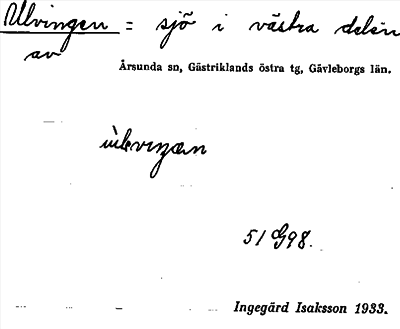 Ulvingen = sjö i västra delen
av
Årsunda sn, Gästriklands östra tg, Gävleborgs län.
51 G98.
Ingegärd Isaksson 1933.